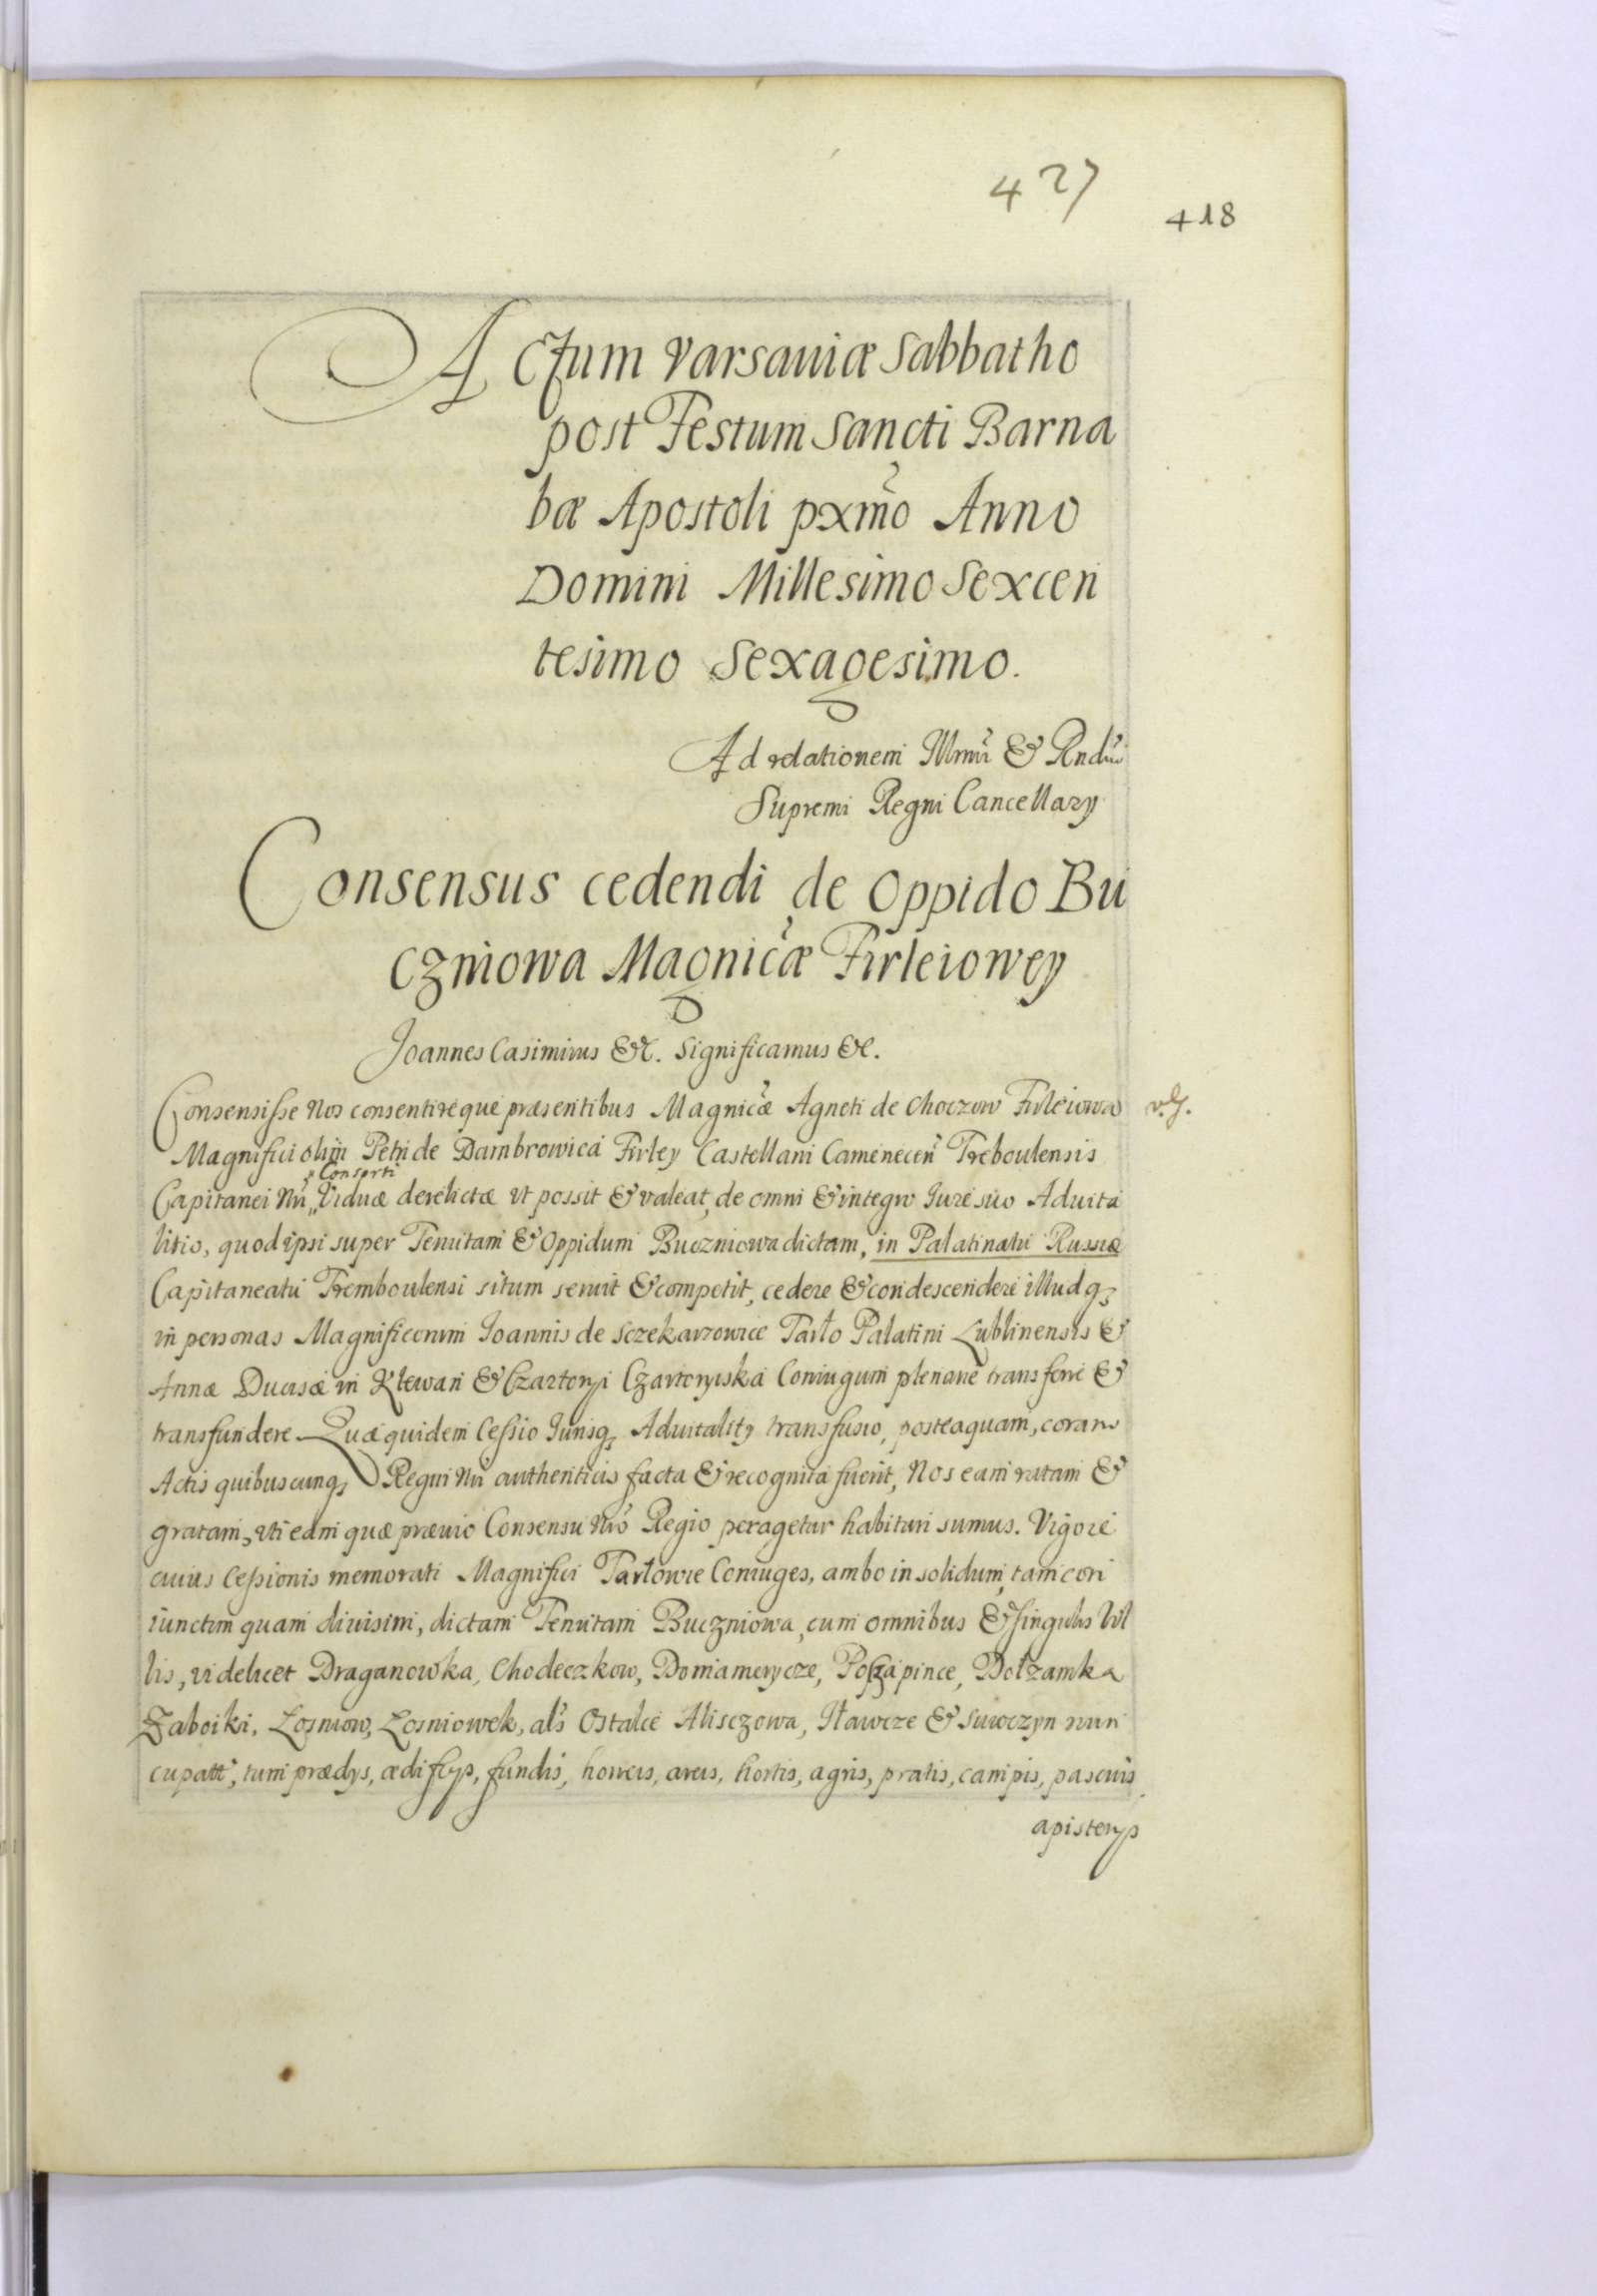 427
418
Actum Varsauiæ Sabbatho
post Festum Sancti Barna
bæ Apostoli pxm̃o Anno
Domini Millesimo Sexcen
tesimo Sexagesimo.
Ad relationem Illmi & Rndi
Supremi Regni Cancellarÿ
Consensus cedendi de Oppido Bu
czniowa Magnicæ Firleiowey
Joannes Casimirus &c. Significamus &c.
Consensisse Nos consentireque præsentibus Magnicæ Agneti de Choczow Firleiowa
Magnifici olim Petri de Dambrowica Firley Castellani Camenecen̄ Treboulensis
Consorti
Capitanei Nri Viduæ derelictæ vt possit & valeat, de omni & integro Jure suo Aduita
litio, quod ipsi super Tenutam & Oppidum Buczniowa dictam, in Palatinatu Russiæ
Capitaneatu Tremboulensi situm seruit & competit, cedere & condescendere illudq;
in personas Magnificorum Joannis de Sczekarzowice Tarło Palatini Lublinensis &
Annæ Ducisæ in Klewan & Czartorÿi Czartoryiska Coniugum plenarie transferre &
transfundere. Quæ quidem Cessio Jurisq; Aduitalitÿ transfusio, posteaquam, coram
Actis quibuscunq; Regni Nri authenticis facta & recognita fuerit, Nos eam ratam &
gratam, vti eam quæ præuio Consensu Nro Regio peragetur habituri sumus. Vigore
cuius Cessionis memorati Magnifici Tarłowie Coniuges, ambo in solidum, tam con
iunctim quam diuisim, dictam Tenutam Buczniowa, cum omnibus & singulis Vil
lis, videlicet Draganowka, Chodeczkow, Domamerycze, Poczapince, Dołzamka
Zaboiki, Łosniow, Łosniowek, als Ostalce Alisczowa, Iławcze & Suwczyn nun
cupatt, tum prædÿs, ædificÿs, fundis, horreis, areis, hortis, agris, pratis, campis, pascuis
apisterÿs